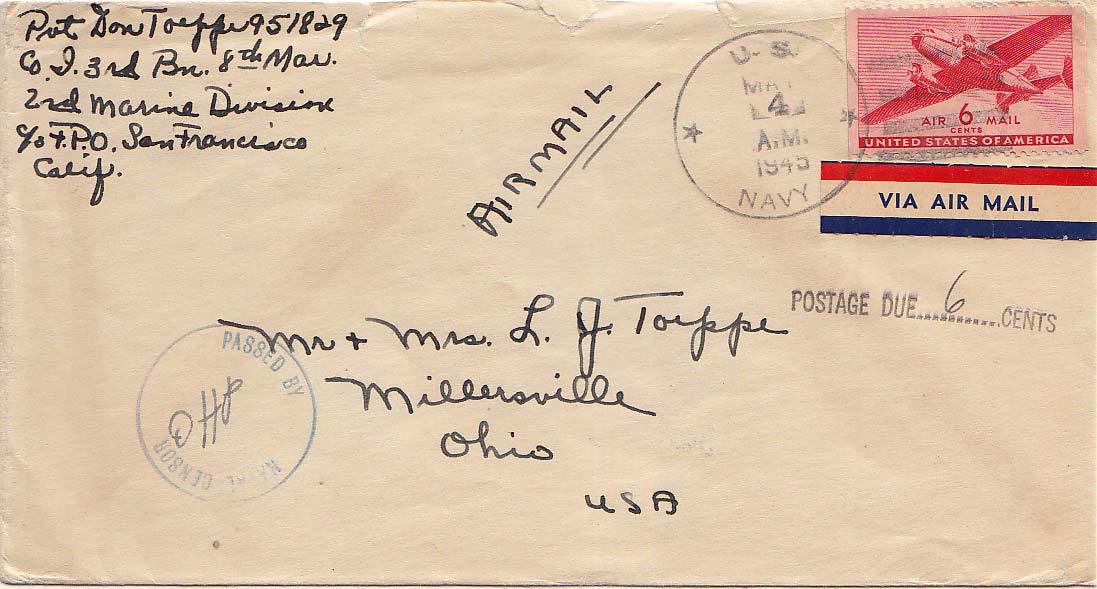 Pvt Don Toeppe 951829
Co. I. 3rd Bn. 8th Mar.
2nd Marine Division
c/o F.P.O. San Francisco
Calif.
AIRMAIL
U.S.
MAY
4
A.M.
1945
NAVY
AIR 6 MAIL
CENTS
UNITED STATES OF AMERICA
VIA AIR MAIL
POSTAGE DUE 6 CENTS
Mr + Mrs. L. J. Toeppe
Millersville
Ohio
USA
PASSED BY
NAVAL CENSOR